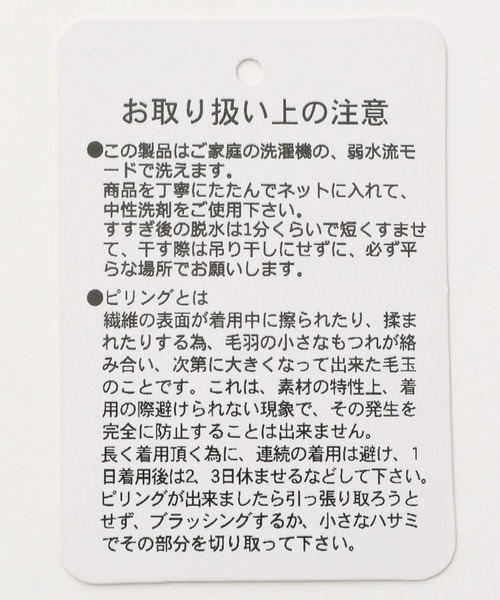 お取り扱い上の注意
●この製品はご家庭の洗濯機の、弱水流モ
ードで洗えます。
商品を丁寧にたたんでネットに入れて、
中性洗剤をご使用下さい。
すすぎ後の脱水は1分くらいで短くすませ
て、干す際は吊り干しにせずに、必ず平
らな場所でお願いします。
●ピリングとは
繊維の表面が着用中に擦られたり、揉ま
れたりする為、毛羽の小さなもつれが絡
み合い、次第に大きくなって出来た毛玉
のことです。これは、素材の特性上、着
用の際避けられない現象で、その発生を
完全に防止することは出来ません。
長く着用頂く為に、連続の着用は避け、1
日着用後は2、3日休ませるなどして下さい。
ピリングが出来ましたら引っ張り取ろうと
せず、ブラッシングするか、小さなハサミ
でその部分を切り取って下さい。